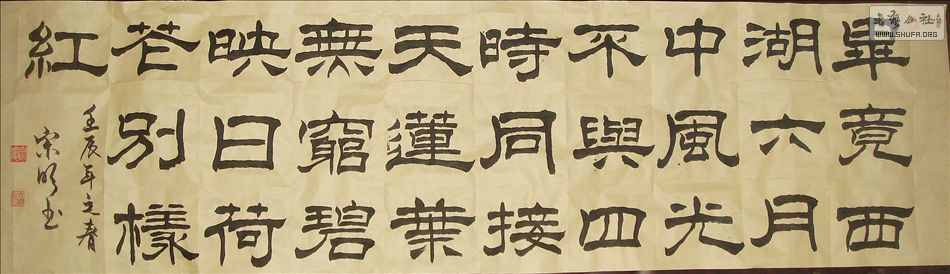 畢竟西
湖六月
中風光
不與四
時同接
天蓮葉
無窮碧
映日荷
花別樣
紅
壬辰年之春
宋明玉
公社
WWW.SHUFA.ORG